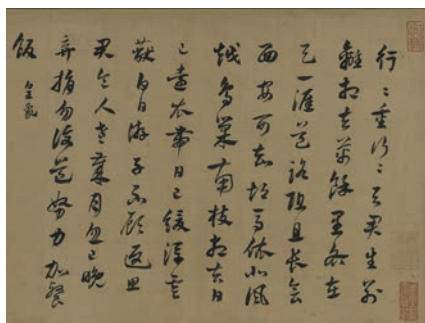 行〻重行〻与君生别
離相去萬餘里各在
天一涯道路阻且長會
面安可知胡馬依北風
越鳥巢南枝相去日
已遠衣帶日已緩浮雲
蔽白日游子不顧返思
君令人老歲月忽已晚
棄捐勿復道努力加餐
飯